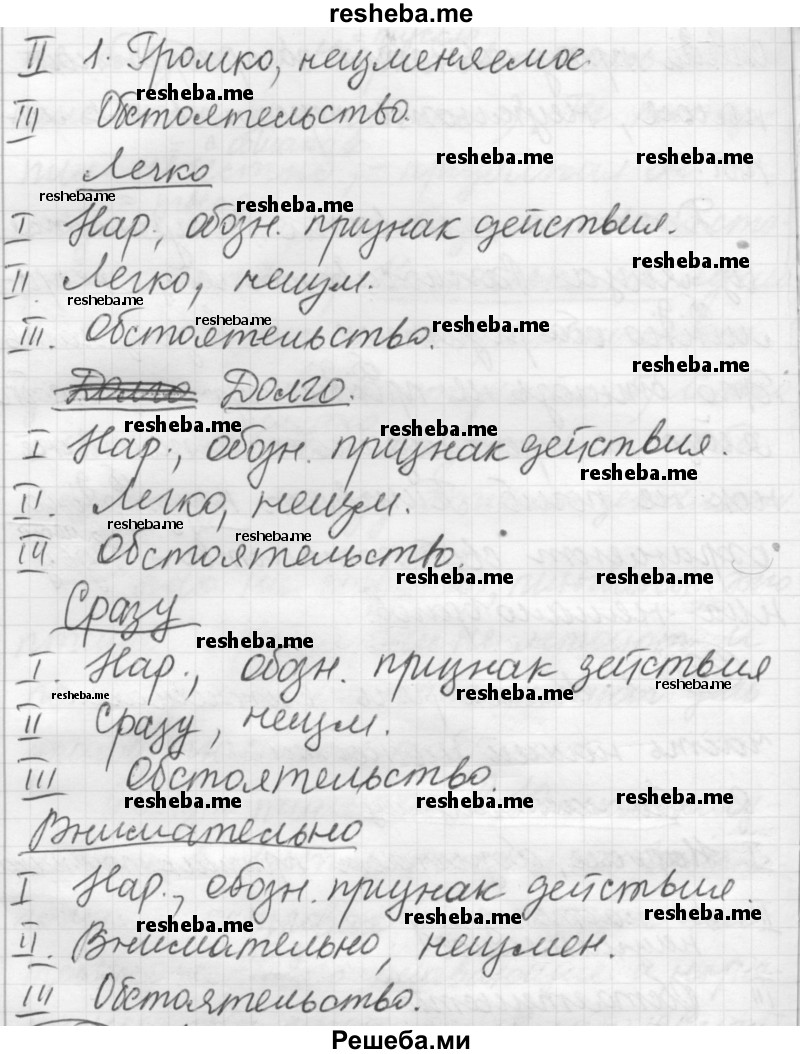 resheba.me
II 1. Громко, неизменяемое.
resheba.me
III Обстоятельство.
resheba.me resheba.me
Легко
resheba.me resheba.me
I Нар., обозн. признак действия.
resheba.me
II Легко, неизм.
resheba.me resheba.me resheba.me
III. Обстоятельство.
resheba.me
Долго Долго.
resheba.me resheba.me
I Нар., обозн. признак действия.
resheba.me
II. Легко, неизм.
resheba.me resheba.me
III Обстоятельство.
resheba.me resheba.me
Сразу
resheba.me
I. Нар., обозн. признак действия
resheba.me resheba.me resheba.me
II Сразу, неизм.
III Обстоятельство.
resheba.me resheba.me resheba.me
Внимательно
I Нар., обозн. признак действия.
resheba.me resheba.me resheba.me
II. Внимательно, неизмен.
III Обстоятельство.
resheba.me resheba.me resheba.me
Решеба.ми